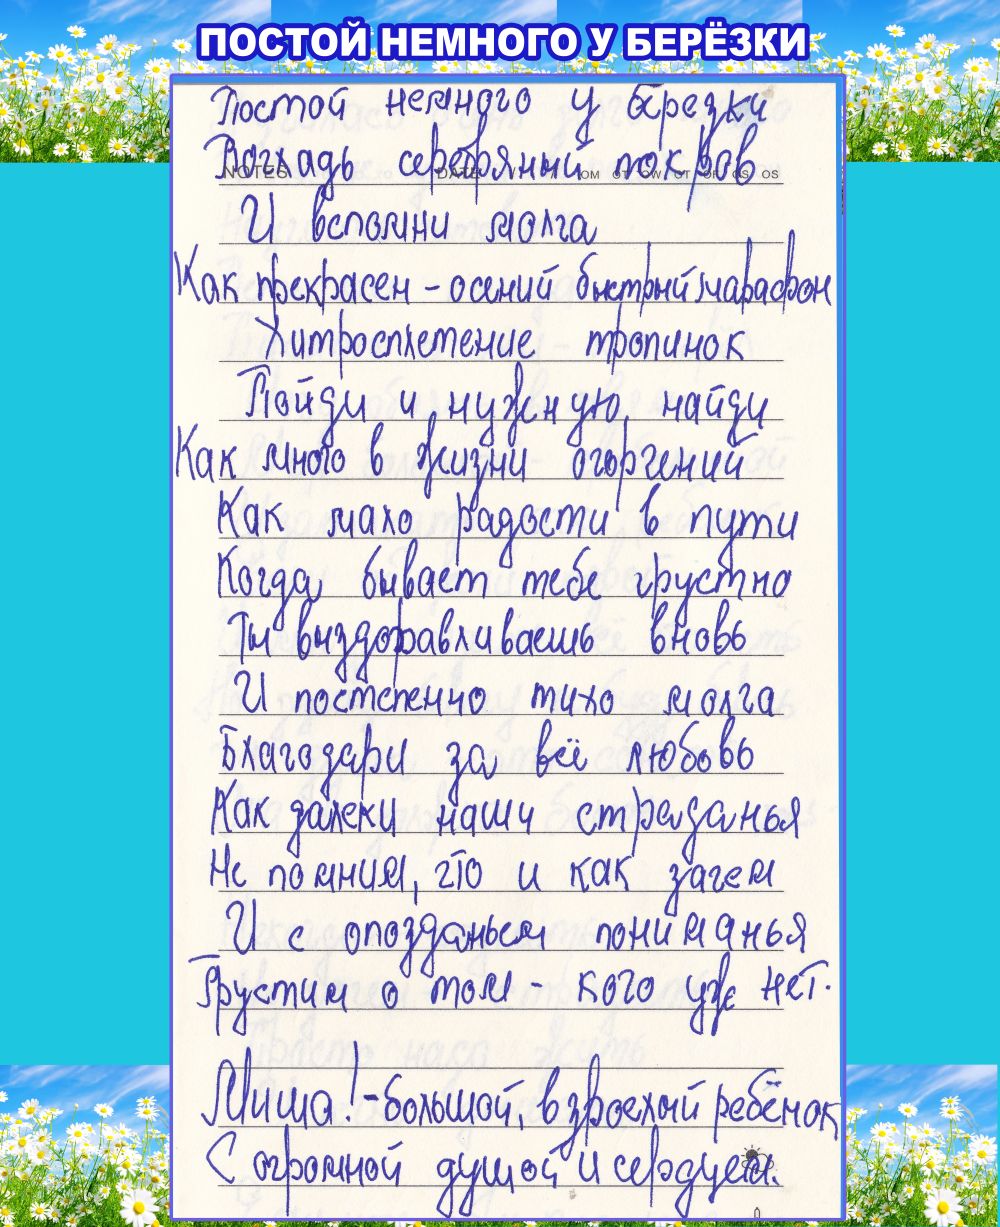 ПОСТОЙ НЕМНОГО У БЕРЁЗКИ
Постой немного у берёзки
Погладь серебряный покров
NOTES DATE OM OT OW OT OF OS OS
И вспомни молча
Как прекрасен - осений быстрый марафон
Хитросплетение - тропинок
Пойди и нужную найди
Как много в жизни огорчений
Как мало радости в пути
Когда бывает тебе грустно
Ты выздоравливаешь вновь
И постепенно тихо молча
Благодари за всё любовь
Как далеки наши страданья
Не помним, что и как зачем
И с опозданьем пониманья
Грустим о том - кого уже нет.
Миша! - большой, взрослый ребёнок
С огромной душой и сердцем.